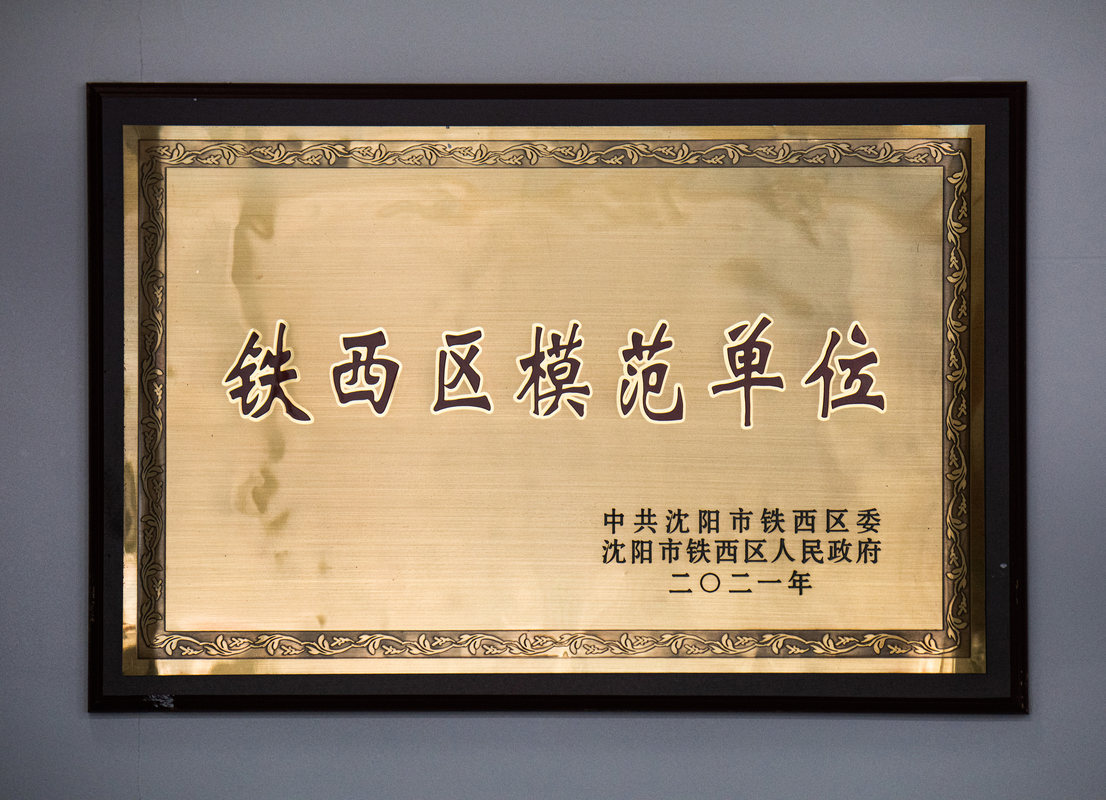 铁西区模范单位
中共沈阳市铁西区委
沈阳市铁西区人民政府
二〇二一年